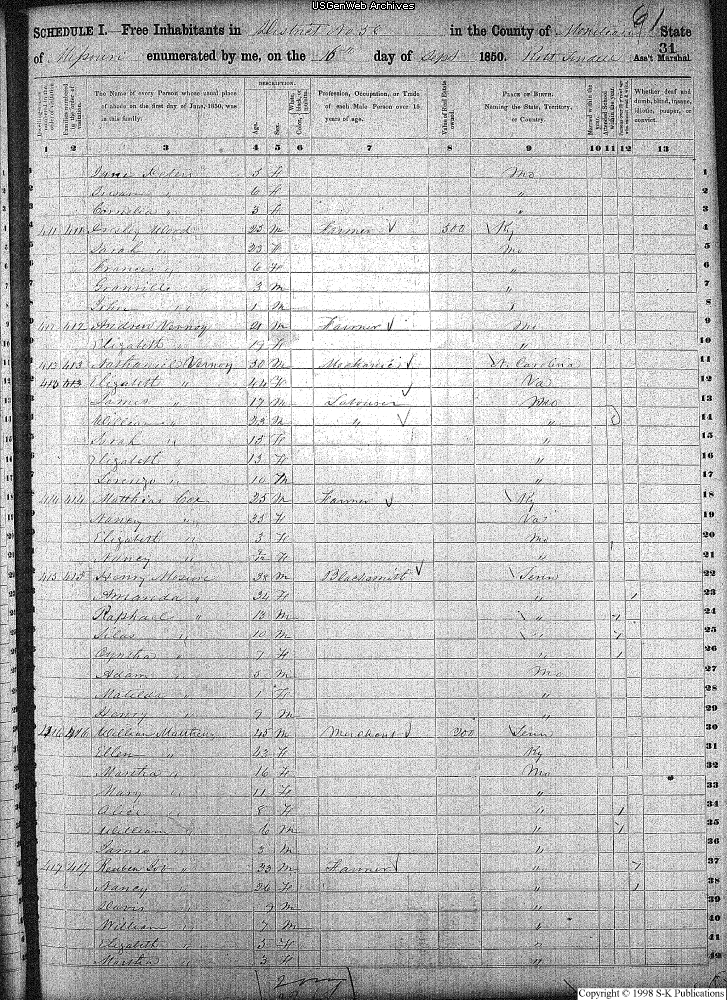 USGenWeb Archives
61
SCHEDULE I. Free Inhabitants in District No 56 in the County of State
of Missouri enumerated by me, on the 16th day of Sept 1850. 31 Ass't Marshal.
DESCRIPTION.
The Name of every Person whose usual place of abode on the first day of June, 1850, was in this family.
Age.
Sex.
Profession, Occupation, or Trade of each Male Person over 15 years of age.
Value of Real Estate owned.
PLACE OF BIRTH. Naming the State, Territory, or Country.
Whether deaf and dumb, blind, insane, idiotic, pauper, or convict.
1 2 3 4 5 6 7 8 9 10 11 12 13
1 Jane 5 F Mo 1
2 6 F " 2
3 Cornelia " 3 F " 3
4 411 411 Wood 25 M Farmer 500 Ky 4
5 Sarah " 23 F Mo 5
6 Francis " 6 F " 6
7 Granville " 3 M " 7
8 John " 1 M " 8
9 412 412 Andrew Vernoy 21 M Farmer Mo 9
10 Elizabeth " 19 F " 10
11 413 413 Nathaniel Vernoy 50 M Mechanic N. Carolina 11
12 Elizabeth " 44 F Va 12
13 James " 17 M Labourer Mo 13
14 William " 22 M " " 14
15 Sarah " 15 F " 15
16 Elizabeth " 13 F " 16
17 Lorenzo " 10 M " 17
18 414 414 Matthias Cox 25 M Farmer Ky 18
19 Nancy " 33 F Va 19
20 Elizabeth " 3 F Mo 20
21 Nancy " F " 21
22 415 415 Henry 38 M Blacksmith Tenn 22
23 Amanda " 34 F " 23
24 Raphael " 13 M " 24
25 Silas " 10 M " 25
26 Cyntha " 7 F " 26
27 Adam " 5 M Mo 27
28 Matilda " 1 F " 28
29 Henry " 9 M " 29
30 416 416 William Matthews 45 M Merchant 200 Tenn 30
31 Ellen " 43 F Ky 31
32 Martha " 16 F Mo 32
33 Mary " 11 F " 33
34 Alice " 8 F " 34
35 William " 6 M " 35
36 James " 3 M " 36
37 417 417 Reuben 33 M Farmer " 37
38 Nancy " 26 F " 38
39 Davis " 9 M " 39
40 William " 7 M " 40
41 Elizabeth " 5 F " 41
42 Martha " 3 F " 42
Copyright © 1998 S-K Publications